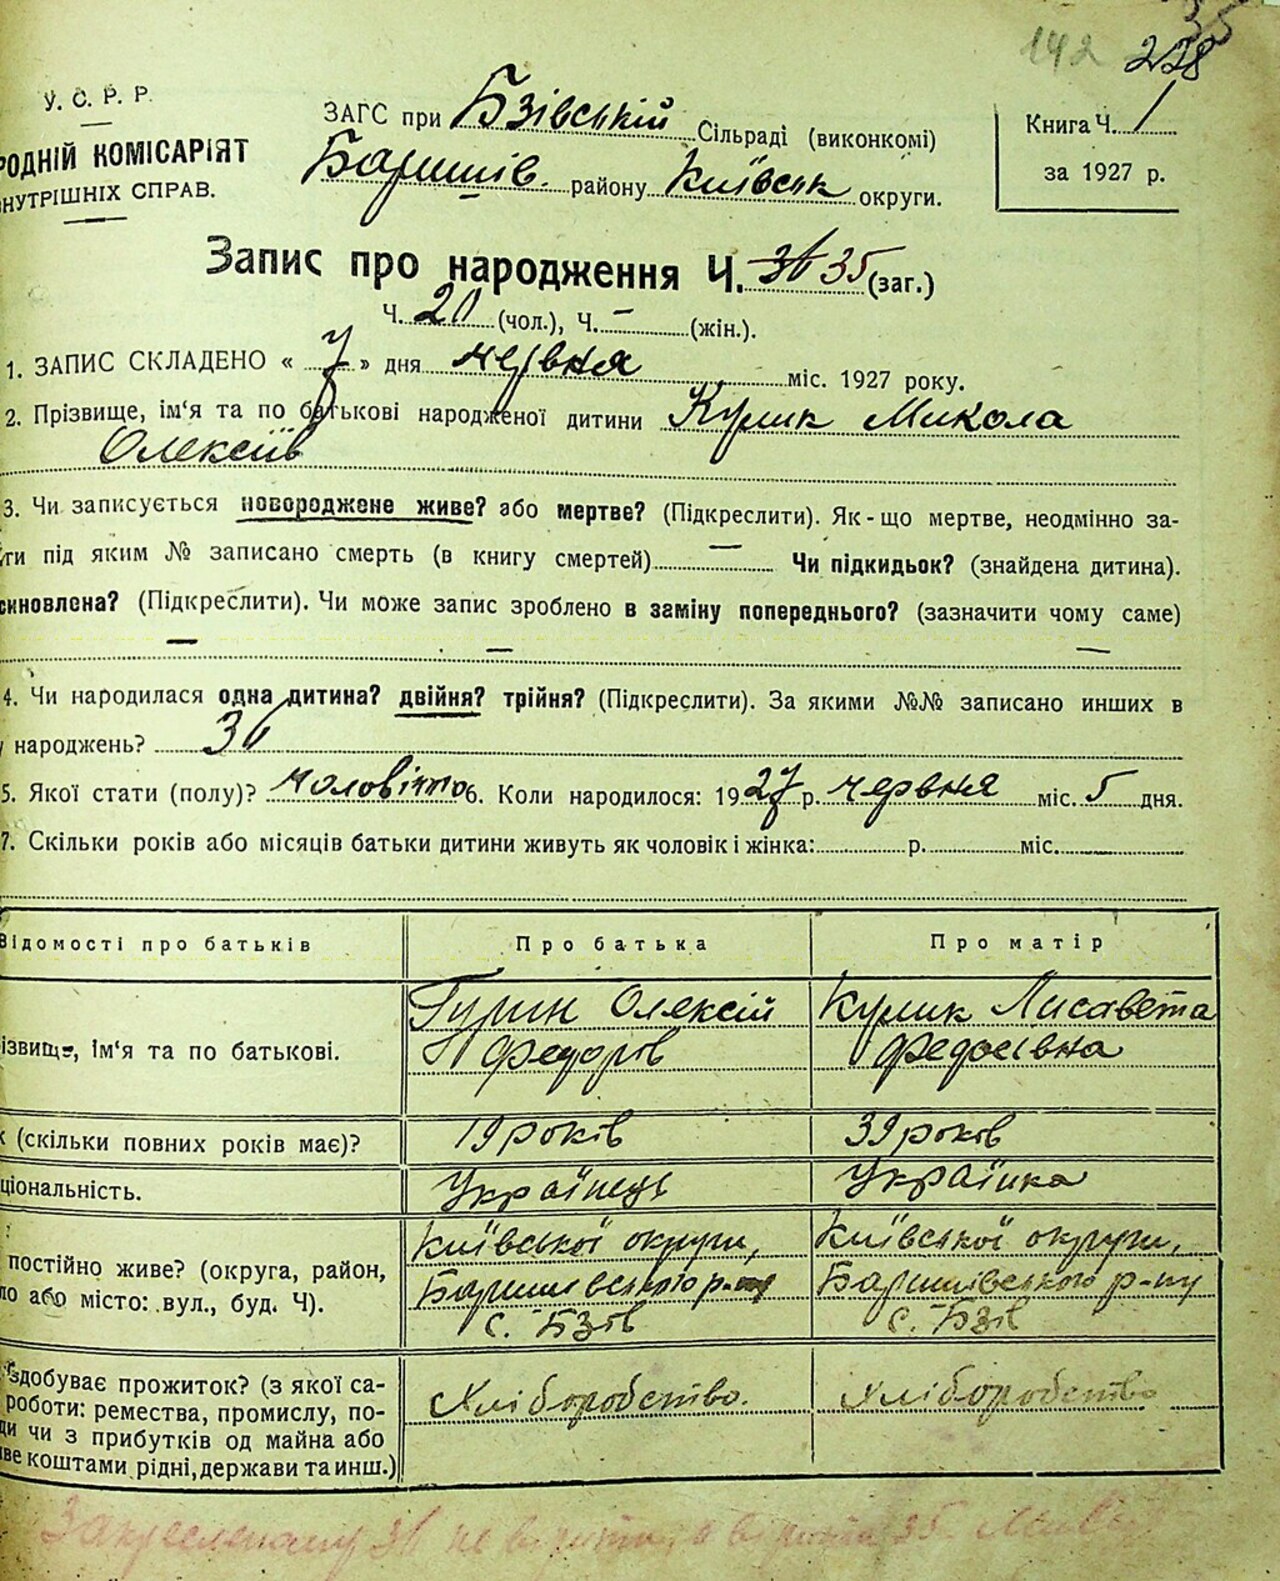 35
142 228
У. С. Р. Р.
РОДНІЙ КОМІСАРІЯТ
НУТРІШНІХ СПРАВ.
ЗАГС при Бзівській Сільраді (виконкомі)
Баришів. району Київськ округи.
Книга Ч. 1
за 1927 р.
Запис про народження Ч. 36 35 (заг.)
Ч. 20 (чол.), Ч. – (жін.).
1. ЗАПИС СКЛАДЕНО « 7 » дня червня міс. 1927 року.
2. Прізвище, ім'я та по батькові народженої дитини Кулик Микола
Олексіїв
3. Чи записується новороджене живе? або мертве? (Підкреслити). Як-що мертве, неодмінно за-
ти під яким № записано смерть (в книгу смертей) — Чи підкидьок? (знайдена дитина).
синовлена? (Підкреслити). Чи може запис зроблено в заміну попереднього? (зазначити чому саме)
— — —
4. Чи народилася одна дитина? двійня? трійня? (Підкреслити). За якими №№ записано инших в
народжень? 36
5. Якої стати (полу)? чоловічто 6. Коли народилося: 1927 р. червня міс. 5 дня.
7. Скільки років або місяців батьки дитини живуть як чоловік і жінка: р. міс.
Відомості про батьків Про батька Про матір
ізвище, ім'я та по батькові. Гурин Олексій Федорів Кулик Лисавета Федосівна
к (скільки повних років має)? 19 років 39 років
ціональність. Українець Українка
постійно живе? (округа, район, Київської округи, Київської округи,
ло або місто: вул., буд. Ч). Баришівського р-ну Баришівського р-ну
с. Бзів с. Бзів
здобуває прожиток? (з якої са-
роботи: ремества, промислу, по- Хліборобство. Хліборобство
ди чи з прибутків од майна або
ве коштами рідні, держави та инш.)
Закресленому 36 не вірити, а вірити 35.